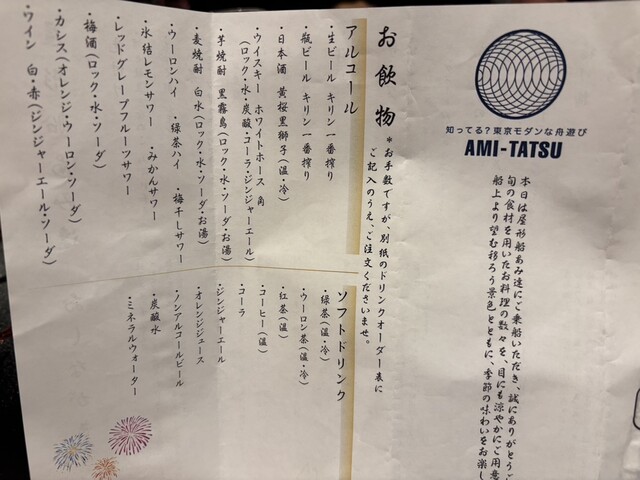 知ってる?東京モダンな舟遊び
AMI-TATSU
本日は屋形船あみ達にご乗船いただき、誠にありがとうご
旬の食材を用いたお料理の数々を、目にも涼やかにご用意
船上より望む移ろう景色とともに、季節の味わいをお楽し
お飲物
*お手数ですが、別紙のドリンクオーダー表に
ご記入のうえ、ご注文くださいませ。
アルコール
・生ビール キリン一番搾り
・瓶ビール キリン一番搾り
・日本酒 黄桜黒獅子(温・冷)
・ウイスキー ホワイトホース 角
(ロック・水・炭酸・コーラ・ジンジャーエール)
・芋焼酎 黒霧島(ロック・水・ソーダ・お湯)
・麦焼酎 白水(ロック・水・ソーダ・お湯)
・ウーロンハイ ・緑茶ハイ ・梅干しサワー
・氷結レモンサワー ・みかんサワー
・レッドグレープフルーツサワー
・梅酒(ロック・水・ソーダ)
・カシス(オレンジ・ウーロン・ソーダ)
・ワイン 白・赤(ジンジャーエール・ソーダ)
ソフトドリンク
・緑茶(温・冷)
・ウーロン茶(温・冷)
・紅茶(温)
・コーヒー(温)
・コーラ
・ジンジャーエール
・オレンジジュース
・ノンアルコールビール
・炭酸水
・ミネラルウォーター